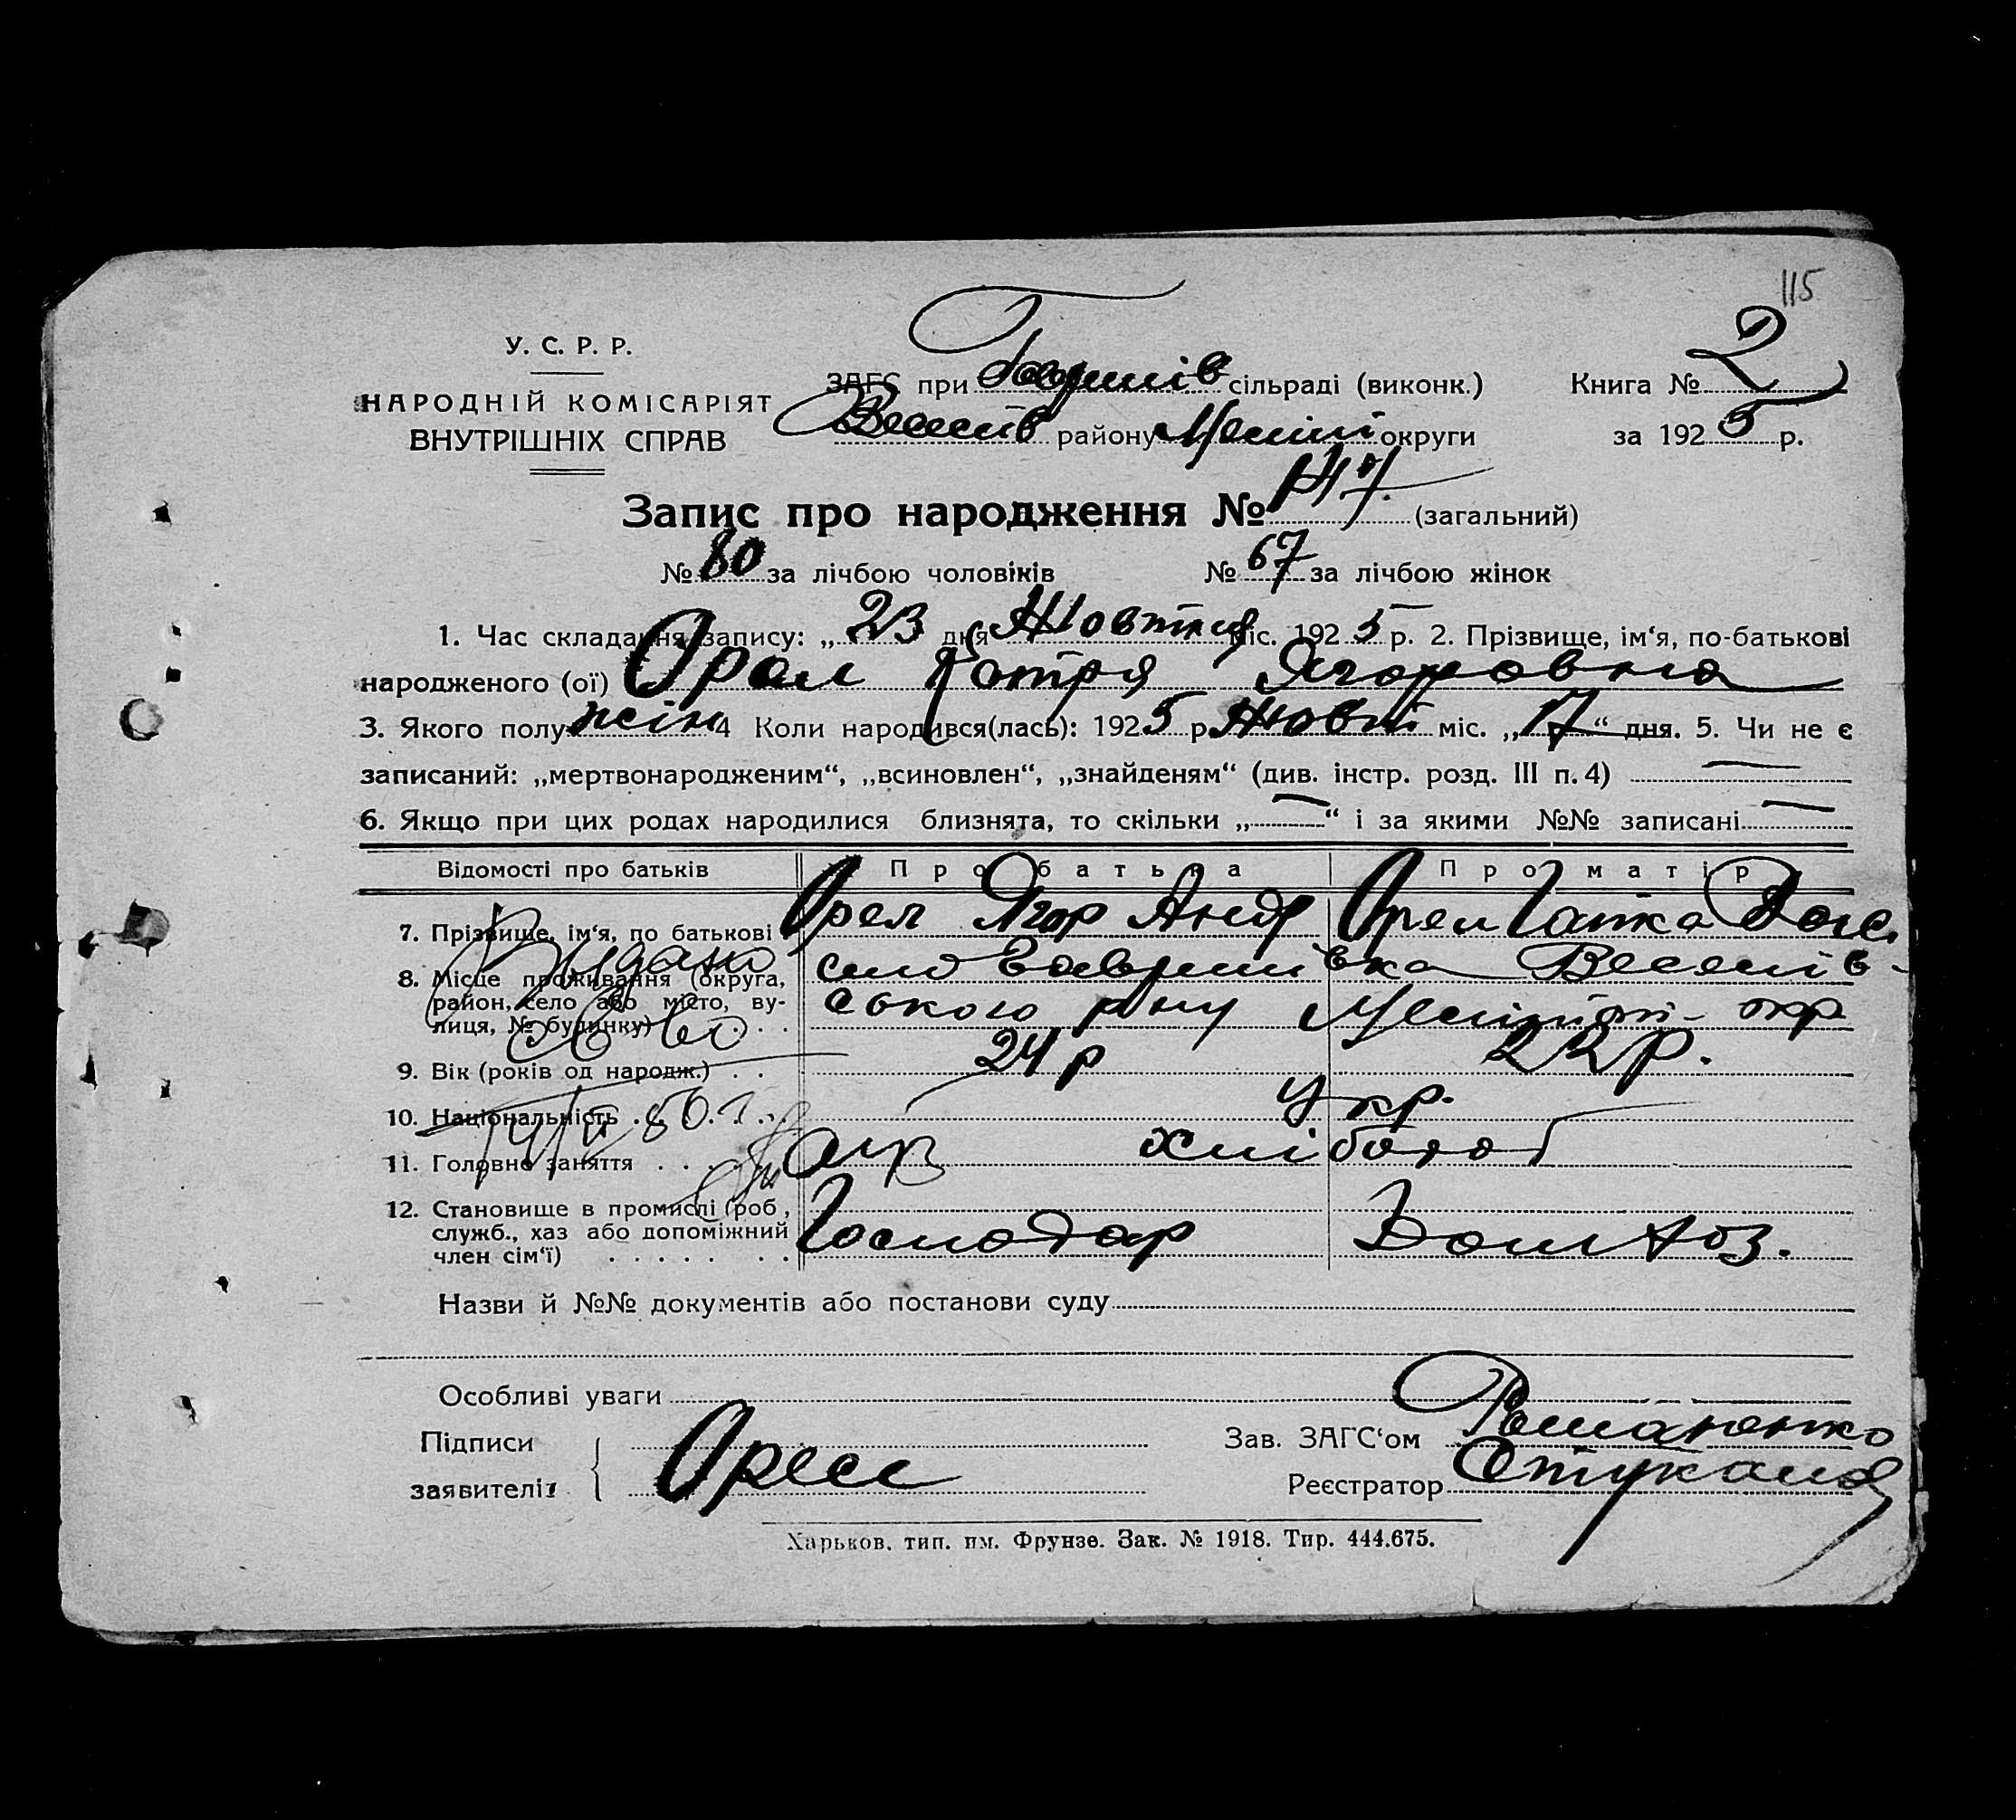 115
У. С. Р. Р.
НАРОДНІЙ КОМІСАРІЯТ
ВНУТРІШНІХ СПРАВ
ЗАГС при Гаврилів сільраді (виконк.)
Веселів району Меліт округи
Книга № 2
за 1925 р.
Запис про народження № 147. (загальний)
№ 80 за лічбою чоловіків № 67 за лічбою жінок
1. Час складання запису: „ 23 дня Жовтня міс. 1925 р. 2. Прізвище, ім‘я, по-батькові
народженого (ої) Орел Котря Ягоровна
3. Якого полу жін 4 Коли народився(лась): 1925 р. Жовт міс. „17“ дня. 5. Чи не є
записаний: „мертвонародженим“, „всиновлен“, „знайденям“ (див. інстр. розд. III п. 4) —
6. Якщо при цих родах народилися близнята, то скільки „—“ і за якими №№ записані —
Відомості про батьків Про батька Про матір
7. Прізвище, ім‘я, по батькові Орел Ягор Андр Орел Гапка
8. Місце проживання (округа,
район, село або місто, ву-
лиця, № будинку) . . . .
село Веселів-
ського р-ну окр
Видано
9. Вік (років од народж.) . . 24 р 22 р.
10. Національність . . . . . Укр.
11. Головне заняття . . . . хлібороб
12. Становище в промислі (роб,
служб., хаз або допоміжний
член сім‘ї) . . . . . . .
Господар Дом хоз.
Назви й №№ документів або постанови суду
Особливі уваги
Підписи
заявителів
Орел
Зав. ЗАГС‘ом Романенко
Реєстратор
Харьков. тип. им. Фрунзе. Зак. № 1918. Тир. 444.675.